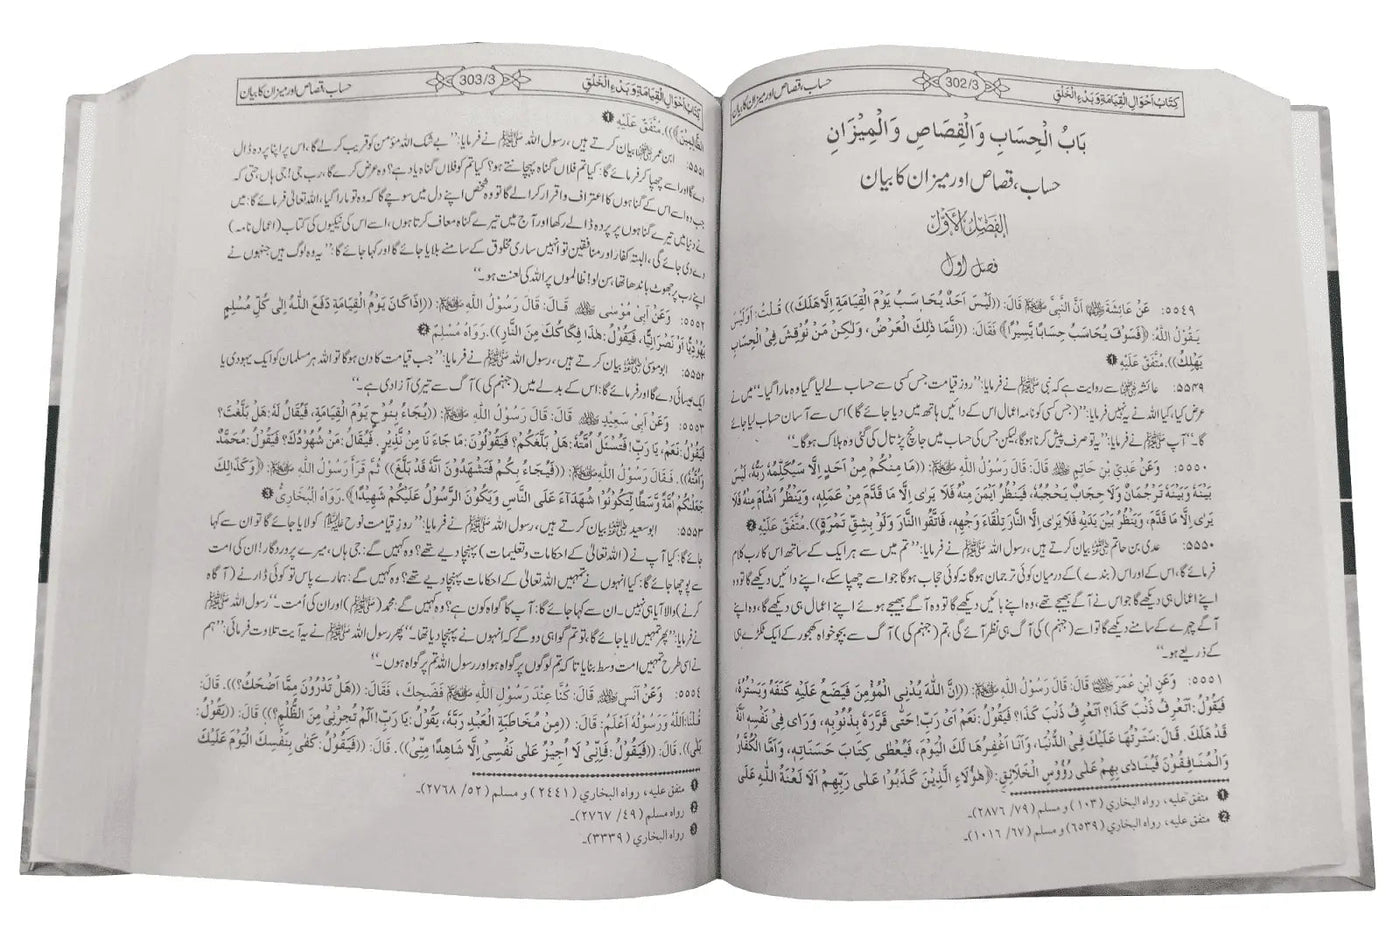 کِتَابُ اَحْوَالِ الْقِیَامَۃِ وَبَدْءِ الْخَلْقِ 302/3 حساب، قصاص اور میزان کا بیان
بَابُ الْحِسَابِ وَالْقِصَاصِ وَالْمِیْزَانِ
حساب، قصاص اور میزان کا بیان
اَلْفَصْلُ الْاَوَّلُ
فصل اول
٥٥٤٩: عَنْ عَائِشَةَ ﷞ اَنَّ النَّبِیَّ ﷺ قَالَ: ((لَیْسَ اَحَدٌ یُحَاسَبُ یَوْمَ الْقِیَامَةِ اِلَّا هَلَكَ)) قُلْتُ: اَوَلَیْسَ
یَقُوْلُ اللّٰهُ: ﴿فَسَوْفَ یُحَاسَبُ حِسَابًا یَّسِیْرًا﴾ فَقَالَ: ((اِنَّمَا ذٰلِكَ الْعَرْضُ، وَلٰكِنْ مَنْ نُوْقِشَ فِی الْحِسَابِ
یَهْلِكُ)). مُتَّفَقٌ عَلَیْهِ ❶
۵۵۴۹: عائشہ ﷞ سے روایت ہے کہ نبی ﷺ نے فرمایا: ’’روز قیامت جس کسی سے حساب لے لیا گیا وہ مارا گیا۔‘‘ میں نے
عرض کیا، کیا اللہ نے یہ نہیں فرمایا: ’’(جس کسی کو نامہ اعمال اس کے دائیں ہاتھ میں دیا جائے گا) اس سے آسان حساب لیا جائے
گا۔‘‘ آپ ﷺ نے فرمایا: ’’یہ تو صرف پیش کرنا ہوگا لیکن جس کی حساب میں جانچ پڑتال کی گئی وہ ہلاک ہوگا۔‘‘
٥٥٥٠: وَعَنْ عَدِیِّ بْنِ حَاتِمٍ ﷜ قَالَ: قَالَ رَسُوْلُ اللّٰهِ ﷺ: ((مَا مِنْكُمْ مِنْ اَحَدٍ اِلَّا سَیُكَلِّمُهُ رَبُّهُ، لَیْسَ
بَیْنَهُ وَبَیْنَهُ تَرْجُمَانٌ وَلَا حِجَابٌ یَحْجُبُهُ، فَیَنْظُرُ اَیْمَنَ مِنْهُ فَلَا یَرٰی اِلَّا مَا قَدَّمَ مِنْ عَمَلِهِ، وَیَنْظُرُ اَشْاَمَ مِنْهُ فَلَا
یَرٰی اِلَّا مَا قَدَّمَ، وَیَنْظُرُ بَیْنَ یَدَیْهِ فَلَا یَرٰی اِلَّا النَّارَ تِلْقَاءَ وَجْهِهِ، فَاتَّقُوا النَّارَ وَلَوْ بِشِقِّ تَمْرَةٍ)). مُتَّفَقٌ عَلَیْهِ ❷
۵۵۵۰: عدی بن حاتم ﷜ بیان کرتے ہیں، رسول اللہ ﷺ نے فرمایا: ’’تم میں سے ہر ایک کے ساتھ اس کا رب کلام
فرمائے گا، اس کے اور اس (بندے) کے درمیان کوئی ترجمان ہوگا نہ کوئی حجاب ہوگا جو اسے چھپا سکے، اپنے دائیں دیکھے گا تو وہ
اپنے اعمال ہی دیکھے گا جو اس نے آگے بھیجے تھے، وہ اپنے بائیں دیکھے گا تو وہ آگے بھیجے ہوئے اپنے اعمال ہی دیکھے گا، وہ اپنے
آگے چہرے کے سامنے دیکھے گا تو اسے (جہنم) کی آگ ہی نظر آئے گی، تم (جہنم کی) آگ سے بچو خواہ کھجور کے ایک ٹکڑے ہی
کے ذریعے ہو۔‘‘
٥٥٥١: وَعَنِ ابْنِ عُمَرَ ﷠ قَالَ: قَالَ رَسُوْلُ اللّٰهِ ﷺ: ((اِنَّ اللّٰهَ یُدْنِی الْمُؤْمِنَ فَیَضَعُ عَلَیْهِ كَنَفَهُ وَیَسْتُرُهُ،
فَیَقُوْلُ: اَتَعْرِفُ ذَنْبَ كَذَا؟ اَتَعْرِفُ ذَنْبَ كَذَا؟ فَیَقُوْلُ: نَعَمْ اَیْ رَبِّ! حَتّٰی قَرَّرَهُ بِذُنُوْبِهِ، وَرَاٰی فِیْ نَفْسِهِ اَنَّهُ
قَدْ هَلَكَ. قَالَ: سَتَرْتُهَا عَلَیْكَ فِی الدُّنْیَا، وَاَنَا اَغْفِرُهَا لَكَ الْیَوْمَ، فَیُعْطٰی كِتَابَ حَسَنَاتِهِ، وَاَمَّا الْكُفَّارُ
وَالْمُنَافِقُوْنَ فَیُنَادٰی بِهِمْ عَلٰی رُؤُوْسِ الْخَلَائِقِ: ﴿هٰؤُلَاءِ الَّذِیْنَ كَذَبُوْا عَلٰی رَبِّهِمْ اَلَا لَعْنَةُ اللّٰهِ عَلَی
❶ متفق علیه، رواه البخاري (١٠٣) و مسلم (٧٩/ ٢٨٧٦)۔
❷ متفق علیه، رواه البخاري (٦٥٣٩) و مسلم (٦٧/ ١٠١٦)۔
کِتَابُ اَحْوَالِ الْقِیَامَۃِ وَبَدْءِ الْخَلْقِ 303/3 حساب، قصاص اور میزان کا بیان
الظَّالِمِیْنَ﴾)). مُتَّفَقٌ عَلَیْهِ ❶
۵۵۵۱: ابن عمر ﷠ بیان کرتے ہیں، رسول اللہ ﷺ نے فرمایا: ’’بے شک اللہ مؤمن کو قریب کرلے گا، اس پر اپنا پردہ ڈال
دے گا اور اسے چھپا کر فرمائے گا: کیا تم فلاں گناہ پہچانتے ہو؟ کیا تم کو فلاں گناہ یاد ہے؟ وہ عرض کرے گا، رب جی! جی ہاں حتی کہ
جب وہ اسے اس کے گناہوں کا اعتراف و اقرار کرالے گا تو وہ شخص اپنے دل میں سوچے گا کہ وہ تو مارا گیا، اللہ تعالیٰ فرمائے گا: میں
نے دنیا میں تیرے گناہوں پر پردہ ڈالے رکھا اور آج میں تیرے گناہ معاف کرتا ہوں، اسے اس کی نیکیوں کی کتاب (اعمال نامہ)
دے دی جائے گی، البتہ کفار اور منافقین تو انہیں ساری مخلوق کے سامنے بلایا جائے گا اور کہا جائے گا: ’’یہ وہ لوگ ہیں جنہوں نے
اپنے رب پر جھوٹ باندھا تھا، سن لو! ظالموں پر اللہ کی لعنت ہو۔‘‘
٥٥٥٢: وَعَنْ اَبِیْ مُوْسٰی ﷜ قَالَ: قَالَ رَسُوْلُ اللّٰهِ ﷺ: ((اِذَا كَانَ یَوْمُ الْقِیَامَةِ دَفَعَ اللّٰهُ اِلٰی كُلِّ مُسْلِمٍ
یَهُوْدِیًّا اَوْ نَصْرَانِیًّا، فَیَقُوْلُ: هٰذَا فِكَاكُكَ مِنَ النَّارِ)). رَوَاهُ مُسْلِمٌ ❷
۵۵۵۲: ابوموسیٰ ﷜ بیان کرتے ہیں، رسول اللہ ﷺ نے فرمایا: ’’جب قیامت کا دن ہوگا تو اللہ ہر مسلمان کو ایک یہودی یا
ایک عیسائی دے گا اور فرمائے گا: اس کے بدلے میں (جہنم کی) آگ سے تیری آزادی ہے۔‘‘
٥٥٥٣: وَعَنْ اَبِیْ سَعِیْدٍ ﷜ قَالَ: قَالَ رَسُوْلُ اللّٰهِ ﷺ: ((یُجَاءُ بِنُوْحٍ یَوْمَ الْقِیَامَةِ، فَیُقَالُ لَهُ: هَلْ بَلَّغْتَ؟
فَیَقُوْلُ: نَعَمْ، یَا رَبِّ! فَتُسْئَلُ اُمَّتُهُ: هَلْ بَلَّغَكُمْ؟ فَیَقُوْلُوْنَ: مَا جَاءَ نَا مِنْ نَّذِیْرٍ. فَیُقَالُ: مَنْ شُهُوْدُكَ؟ فَیَقُوْلُ: مُحَمَّدٌ
وَاُمَّتُهُ)). فَقَالَ رَسُوْلُ اللّٰهِ ﷺ: ((فَیُجَاءُ بِكُمْ فَتَشْهَدُوْنَ اَنَّهُ قَدْ بَلَّغَ)) ثُمَّ قَرَاَ رَسُوْلُ اللّٰهِ ﷺ: ﴿وَكَذٰلِكَ
جَعَلْنٰكُمْ اُمَّةً وَّسَطًا لِّتَكُوْنُوْا شُهَدَآءَ عَلَی النَّاسِ وَیَكُوْنَ الرَّسُوْلُ عَلَیْكُمْ شَهِیْدًا﴾. رَوَاهُ الْبُخَارِیُّ ❸
۵۵۵۳: ابوسعید ﷜ بیان کرتے ہیں، رسول اللہ ﷺ نے فرمایا: ’’روز قیامت نوح ﷤ کو لایا جائے گا تو ان سے کہا
جائے گا: کیا آپ نے (اللہ تعالیٰ کے احکامات و تعلیمات) پہنچا دیے تھے؟ وہ کہیں گے: جی ہاں، میرے پروردگار! ان کی امت
سے پوچھا جائے گا: کیا انہوں نے تمہیں اللہ تعالیٰ کے احکامات پہنچا دیے تھے؟ وہ کہیں گے: ہمارے پاس تو کوئی ڈرانے (آگاہ
کرنے) والا آیا ہی نہیں۔ ان سے کہا جائے گا: آپ کا گواہ کون ہے؟ وہ کہیں گے: محمد (ﷺ) اور ان کی امت۔‘‘ رسول اللہ ﷺ
نے فرمایا: ’’پھر تمہیں لایا جائے گا، تو تم گواہی دو گے کہ انہوں نے پہنچا دیا تھا۔‘‘ پھر رسول اللہ ﷺ نے یہ آیت تلاوت فرمائی: ’’ہم
نے اسی طرح تمہیں امت وسط بنایا تاکہ تم لوگوں پر گواہ ہو اور رسول اللہ تم پر گواہ ہوں۔‘‘
٥٥٥٤: وَعَنْ اَنَسٍ ﷜ قَالَ: كُنَّا عِنْدَ رَسُوْلِ اللّٰهِ ﷺ فَضَحِكَ، فَقَالَ: ((هَلْ تَدْرُوْنَ مِمَّا اَضْحَكُ؟)). قَالَ:
قُلْنَا: اَللّٰهُ وَرَسُوْلُهُ اَعْلَمُ: قَالَ: ((مِنْ مُخَاطَبَةِ الْعَبْدِ رَبَّهُ، یَقُوْلُ: یَا رَبِّ! اَلَمْ تُجِرْنِیْ مِنَ الظُّلْمِ؟)) قَالَ: ((یَقُوْلُ:
بَلٰی)). قَالَ: ((فَیَقُوْلُ: فَاِنِّیْ لَا اُجِیْزُ عَلٰی نَفْسِیْ اِلَّا شَاهِدًا مِنِّیْ)). قَالَ: ((فَیَقُوْلُ: كَفٰی بِنَفْسِكَ الْیَوْمَ عَلَیْكَ
❶ متفق علیه، رواه البخاري (٢٤٤١) و مسلم (٥٢/ ٢٧٦٨)۔
❷ رواه مسلم (٤٩/ ٢٧٦٧)۔
❸ رواه البخاري (٣٣٣٩)۔